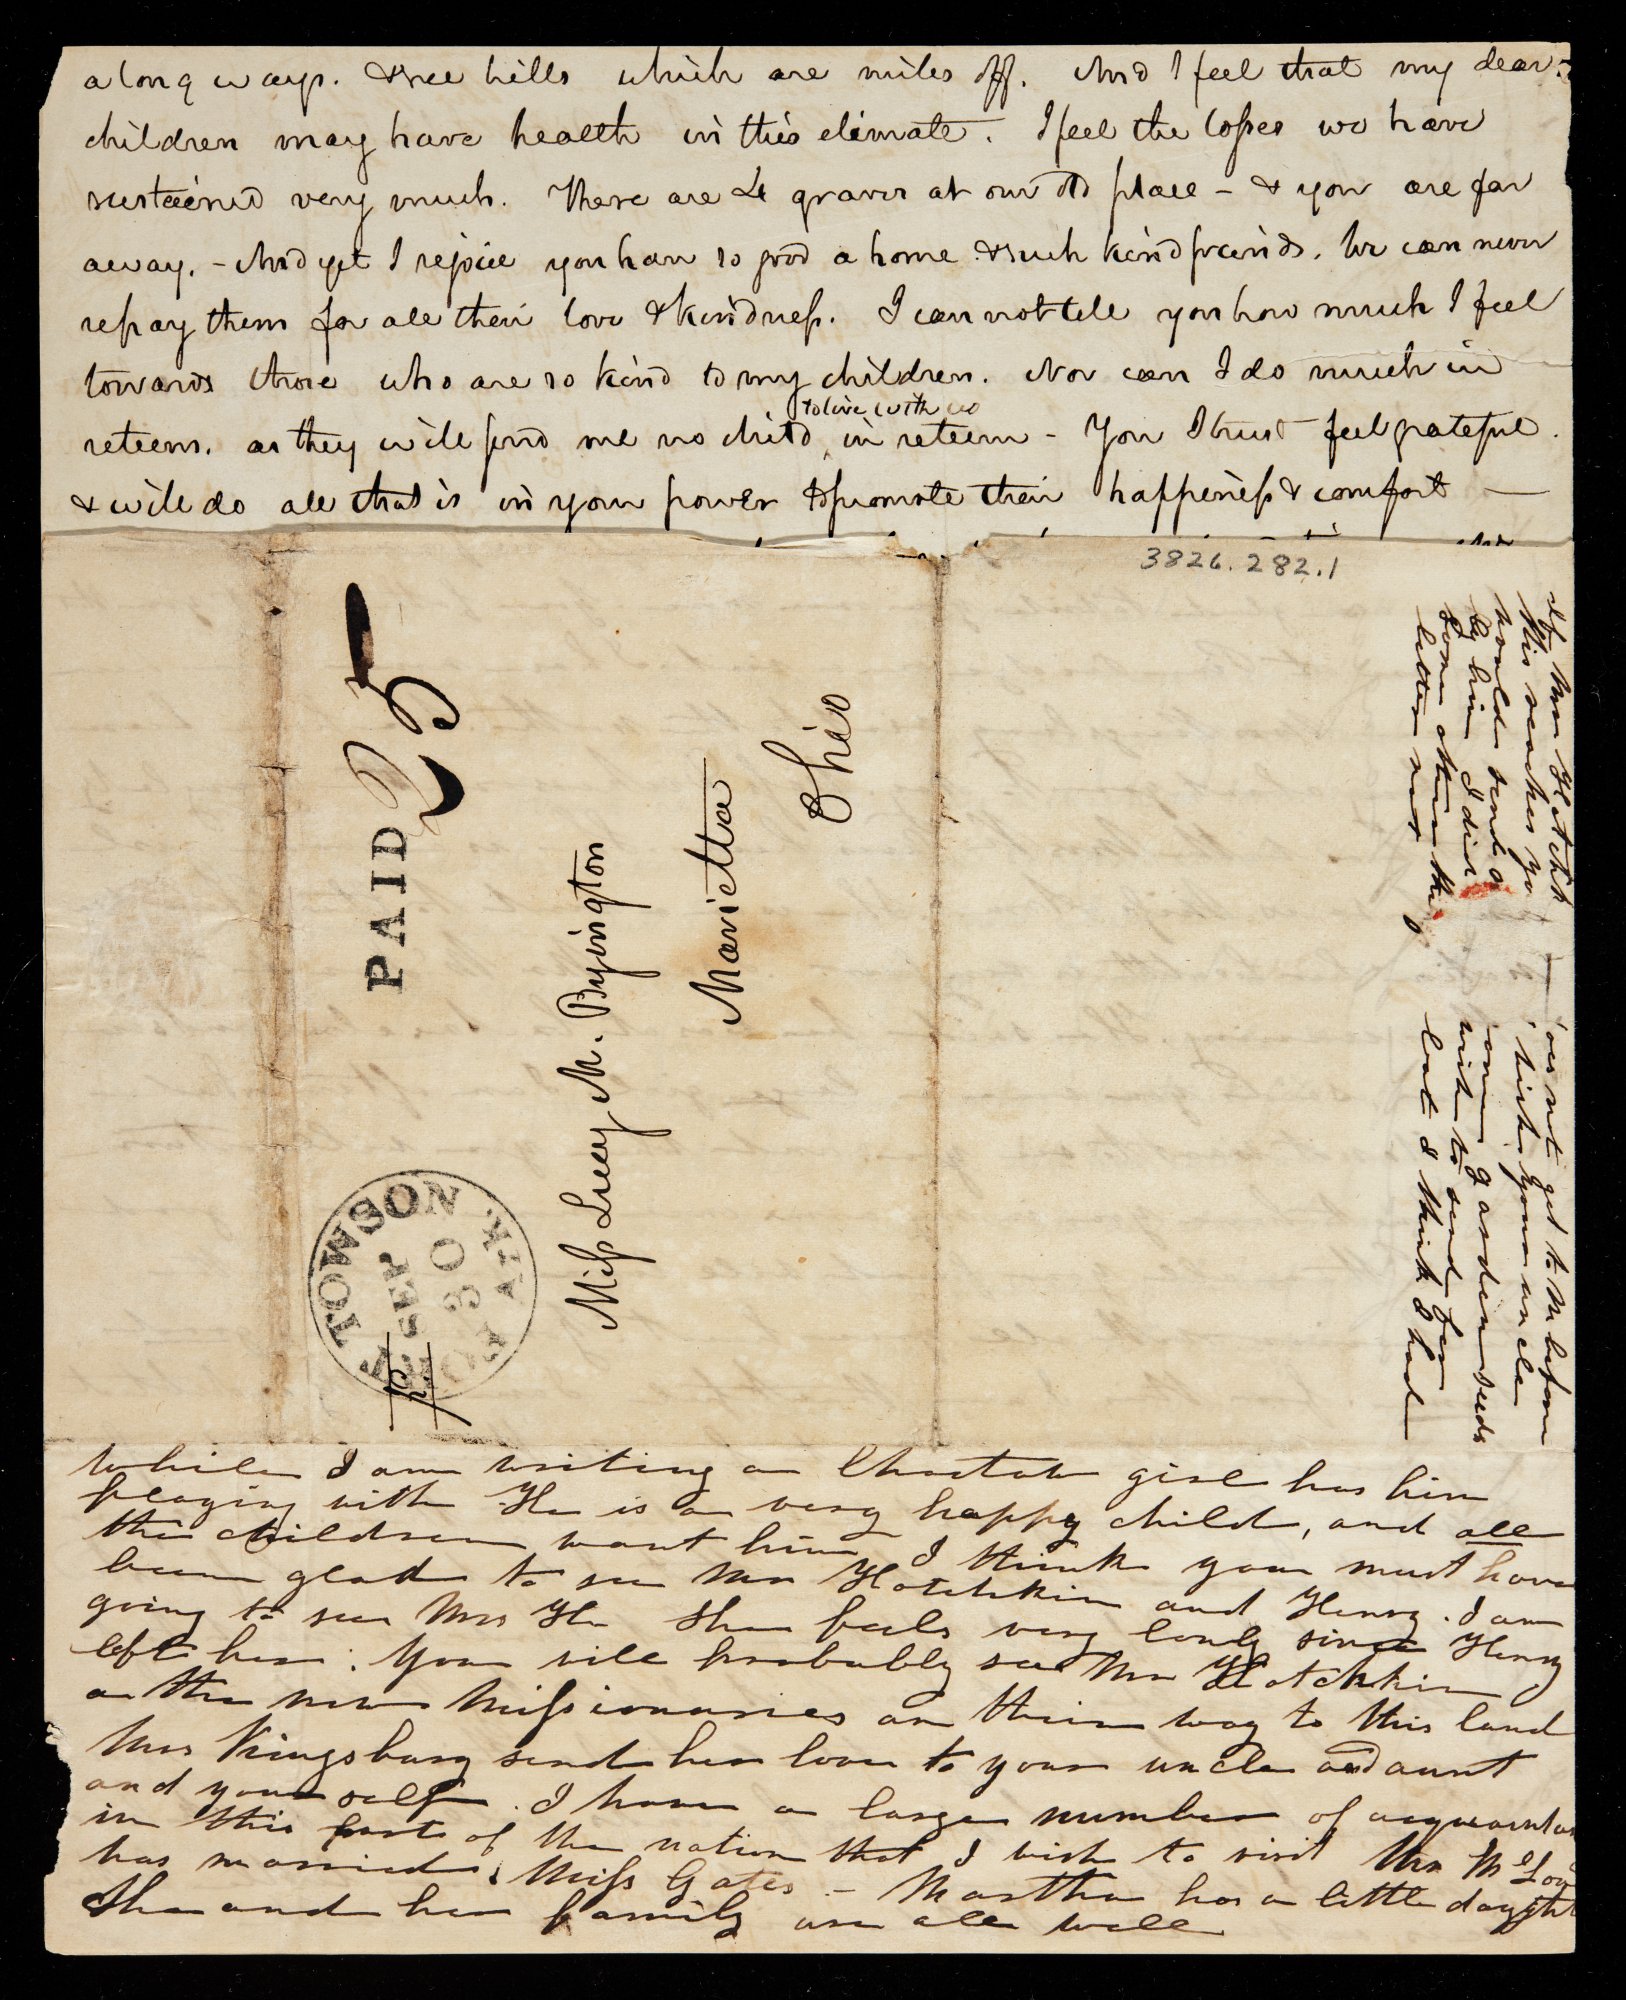 a long ways. & see hills which are miles off. And I feel that my dear
children may have health in this climate. I feel the losses we have
sustained very much. There are 4 graves at our old place - & you are far
away. - And yet I rejoice you have so good a home & such kind freinds. We can never
repay them for all their love & kindness. I can not tell you how much I feel
towards those who are so kind to my children. Nor can I do much in
to live with us
return. as they will send me no child, in return - You I trust feel grateful.
& will do all that is in your power to promote their happiness & comfort —
3826.282.1
PAID 25
Miss Lucy M. Byington
Marietta
Ohio
FORT TOWSON ARK.
SEP
30
If Mr Hotchk
this reaches yo
would send a
by him I did
some other thi
letter next
oes not get to M before
wish your uncle
some garden seeds
wish to send for
but I think I had
while I am writing a Choctaw girl has him
playing with He is a very happy child, and all
the children want him I think you must have
been glad to see Mr Hotchkin and Henry. I am
going to see Mrs H. She feels very lonly since Henry
left her. You will probably see Mr Hotchkin
& the new Missionaries on their way to this land
Mrs Kingsbury send her love to your uncle and aunt
and your self. I have a large number of acquaintan
in this part of the nation that I wish to visit Mr M
has married Miss Gates - Martha has a little daught
She and her family are all well